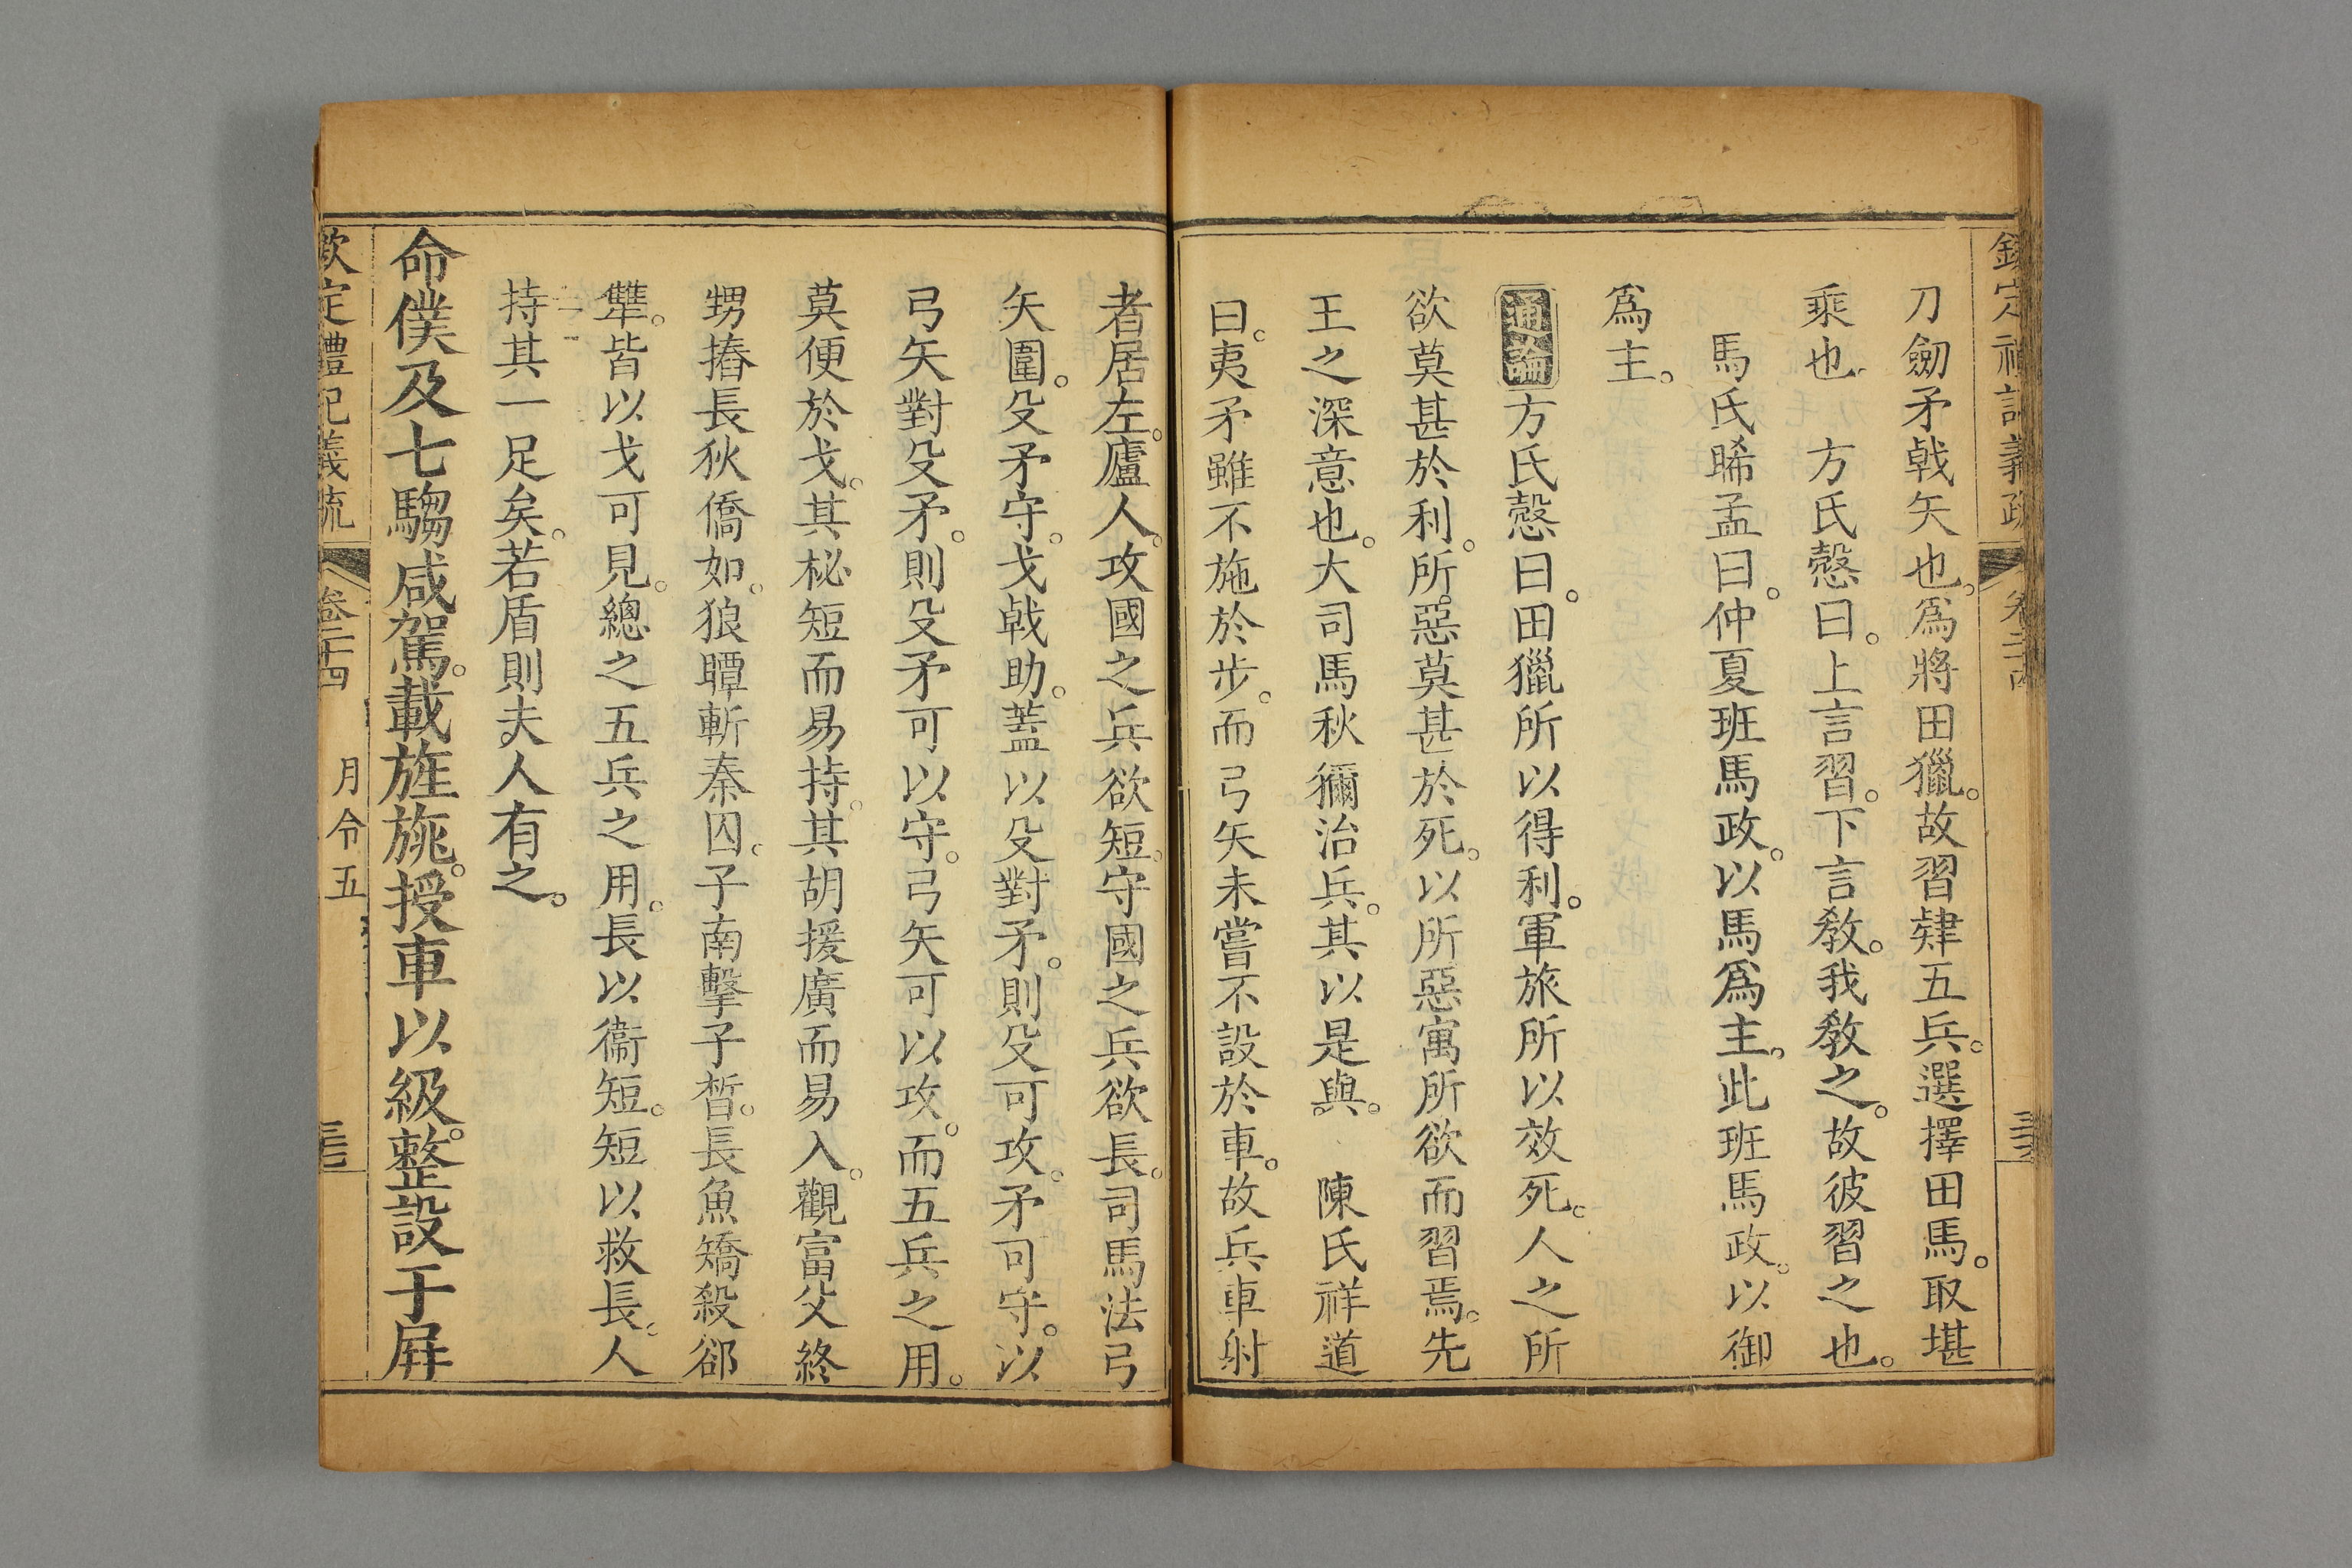 欽定禮記義疏 卷二十四
刀劒矛戟矢也。爲將田獵。故習肄五兵。選擇田馬。取堪
乘也。 方氏慤曰。上言習。下言教。我教之。故彼習之也。
馬氏晞孟曰。仲夏班馬政。以馬爲主。此班馬政。以御
爲主。
通論 方氏慤曰。田獵所以得利。軍旅所以效死。人之所
欲莫甚於利。所惡莫甚於死。以所惡寓所欲而習焉。先
王之深意也。大司馬秋獮治兵。其以是與。 陳氏祥道
曰。夷矛雖不施於步。而弓矢未嘗不設於車。故兵車射
者居左。廬人。攻國之兵欲短。守國之兵欲長。司馬法弓
矢圍。殳矛守。戈戟助。蓋以殳對矛。則殳可攻。矛可守。以
弓矢對殳矛。則殳矛可以守。弓矢可以攻。而五兵之用。
莫便於戈。其柲短而易持。其胡援廣而易入。觀富父終
甥摏長狄僑如。狼瞫斬秦囚。子南擊子晳。長魚矯殺郤
犫。皆以戈可見。總之五兵之用。長以衞短。短以救長。人
持其一足矣。若盾則夫人有之。
命僕及七騶咸駕。載旌旐。授車以級。整設于屛
欽定禮記義疏 卷二十四 月令五 三七